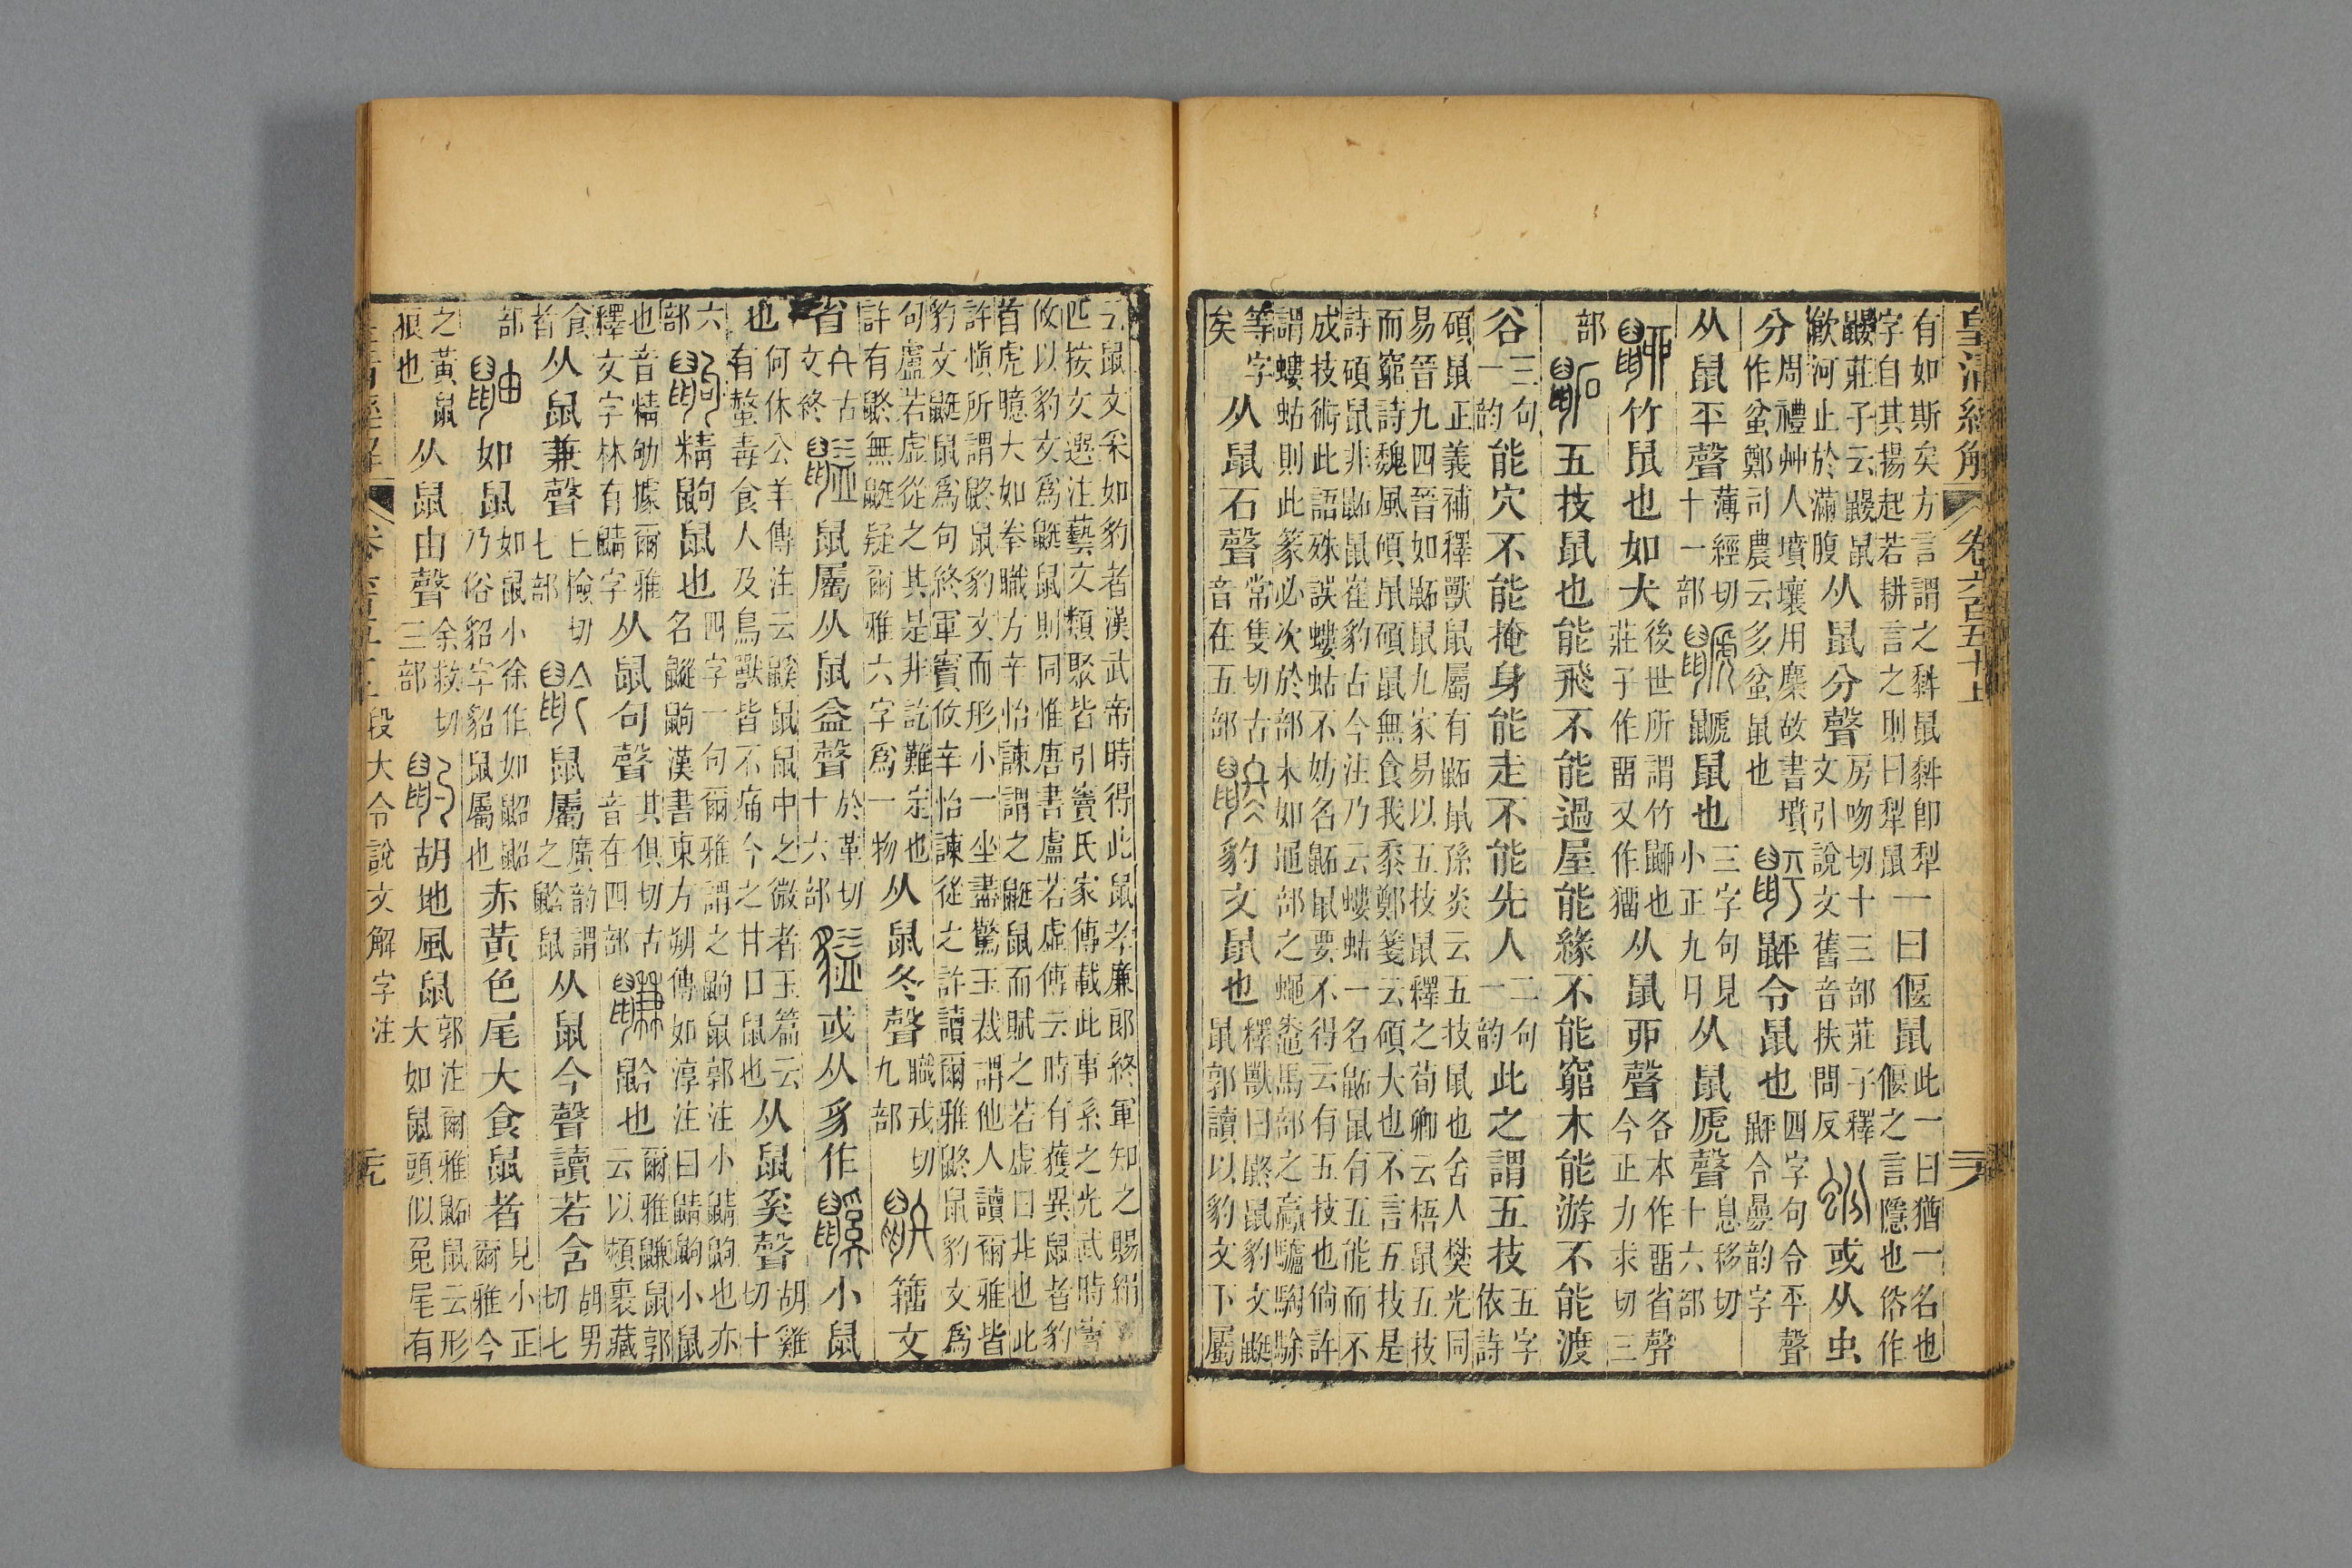 皇清經解 卷六百五十上
有如斯矣方言謂之鼠即犁
字自其揚起若耕言之則曰犁鼠
一曰偃鼠
此一曰猶一名也
偃之言隱也俗作
鼹莊子云鼹鼠
飲河止於滿腹
从鼠分聲
房吻切十三部莊子釋
文引說文舊音扶問反
或从虫
分
周禮艸人墳壤用麋故書墳
作蚠鄭司農云多蚠鼠也
䶄令鼠也
四字句令平聲
䶄令曡韵字
从鼠平聲
薄經切
十一部
鼶鼠也
三字句見
小正九月
从鼠虒聲
息移切
十六部
竹鼠也如犬
後世所謂竹也
莊子作畱又作
从鼠丣聲
各本作畱省聲
今正力求切三
部
五技鼠也能飛不能過屋能緣不能窮木能游不能渡
谷
三句
一韵
能穴不能掩身能走不能先人
二句
一韵
此之謂五技
五字
依詩
碩鼠正義補釋獸鼠屬有鼫鼠孫炎云五技鼠也舍人樊光同
易晉九四晉如鼫鼠九家易以五技鼠釋之荀卿云梧鼠五技
而窮詩魏風碩鼠碩鼠無食我黍鄭箋云碩大也不言五技是
詩碩鼠非鼫鼠崔豹古今注乃云螻蛄一名鼫鼠有五能而不
成技術此語殊誤螻蛄不妨名鼫鼠要不得云有五技也倘許
謂螻蛄則此篆必次於部末如黽部之蠅鼄馬部之驘驢騊駼
等字
矣
从鼠石聲
常隻切古
音在五部
豹文鼠也
釋獸曰鼨鼠豹文鼮
鼠郭讀以豹文下屬
鼠文采如豹者漢武帝時得此鼠孝廉郎終軍知之賜絹
匹按文選注藝文類聚皆引竇氏家傳載此事系之光武時
攸以豹文爲鼮鼠則同惟唐書盧若虛傳云時有獲異鼠者豹
首虎臆大如拳職方辛怡諫謂之鼮鼠而賦之若虛曰非也此
許愼所謂鼨鼠豹文而形小一坐盡驚玉裁謂他人讀爾雅皆
豹文鼮鼠爲句終軍竇攸辛怡諫從之許讀爾雅鼨鼠豹文爲
句盧若虛從之其是非訖難定也
許有鼨無鼮疑爾雅六字爲一物
从鼠冬聲
職戎切
九部
籒文
省
𠔙古
文終
鼠屬从鼠益聲
於革切
十六部
或从豸作
小鼠
也
何休公羊傳注云鼷鼠鼠中之微者玉篇云
有螫毒食人及鳥獸皆不痛今之甘口鼠也
从鼠奚聲
胡雞
切十
六
部
精鼩鼠也
四字一句爾雅謂之鼩鼠郭注小鼱鼩也亦
名䶆鼩漢書東方朔傳如淳注曰鼱鼩小鼠
也音精劬據爾雅
釋文字林有鼱字
从鼠句聲
其俱切古
音在四部
䶃也
爾雅鼸鼠郭
云以頰裹藏
食
者
从鼠兼聲
丘檢切
七部
鼠屬
廣韵謂
之䶃鼠
从鼠今聲讀若含
胡男
切七
部
如鼠
如鼠小徐作如鼦鼦
乃俗貂字貂鼠屬也
赤黃色尾大食鼠者
見小正
爾雅今
之黃鼠
狼也
从鼠由聲
余救切
三部
胡地風鼠
郭注爾雅鼫鼠云形
大如鼠頭似兔尾有
段大令說文解字注